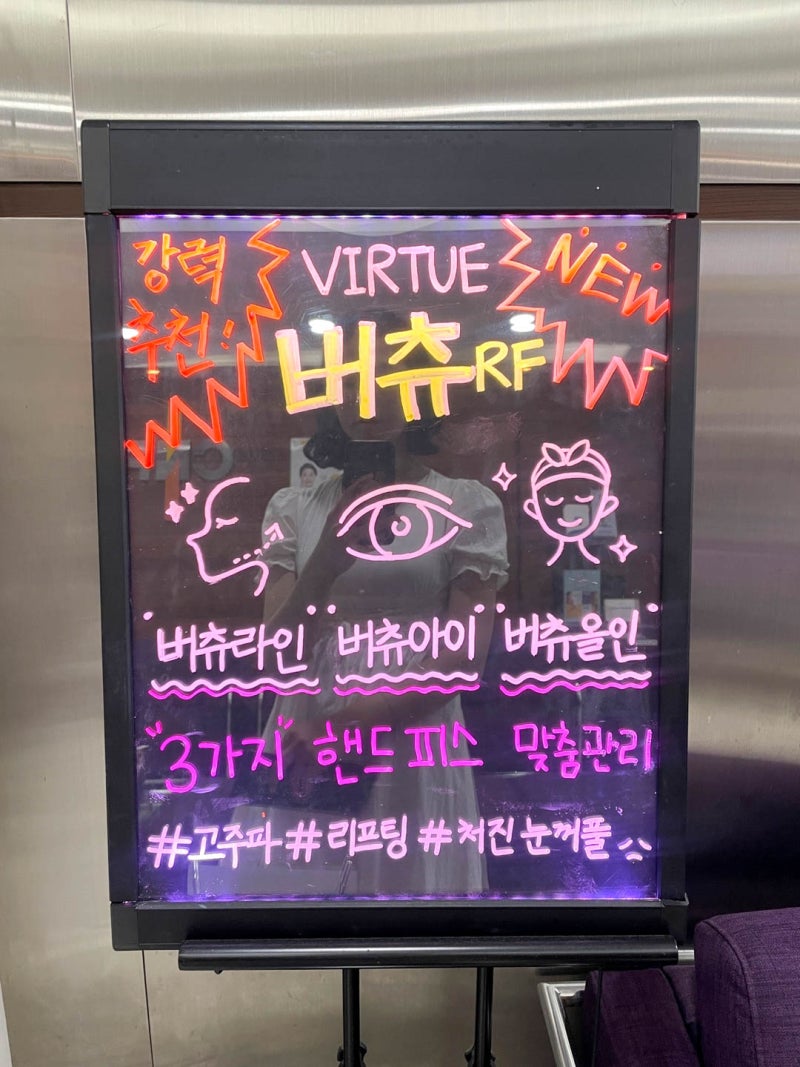 강력
추천!
VIRTUE
NEW
버츄RF
버츄라인 버츄아이 버츄올인
"3가지" 핸드피스 맞춤관리
#고주파 #리프팅 #처진 눈꺼풀